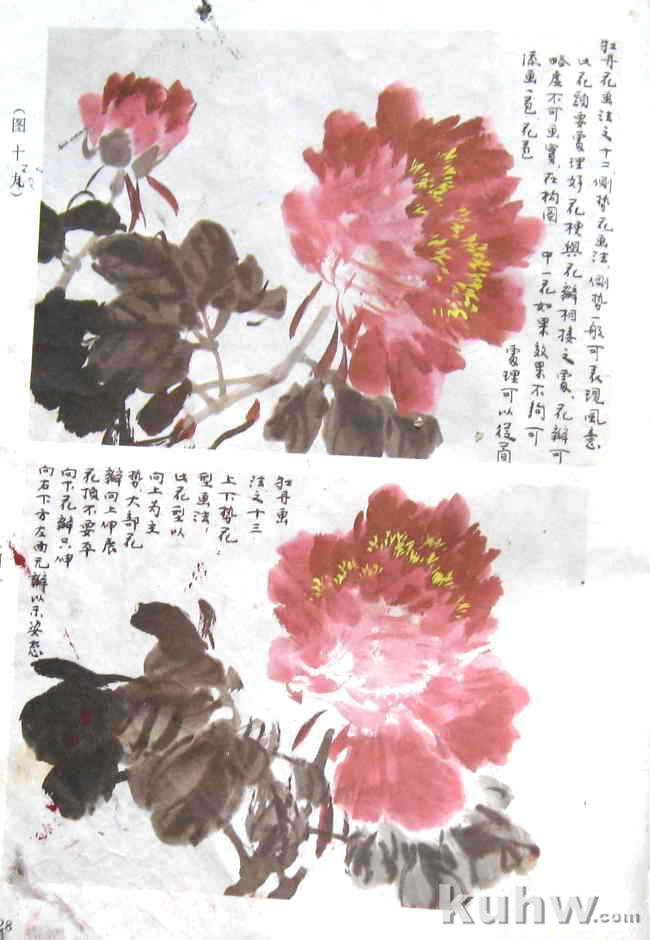 牡丹花画法之十二侧势花画法,侧势一般可表现风意
此花头要处理好花梗与花瓣相接之处,花瓣可
略虚不可画实,在构图中一花如果效果不夠可
添画一苞花苞
处理可以後简
(图十九)
牡丹画
法之十三
上下势花
型画法,
此花型以
向上为主
势,大部花
瓣向上伸展
花顶不要平
向下花瓣只伸
向右下方左两元瓣以示姿态
28
kuhw.com